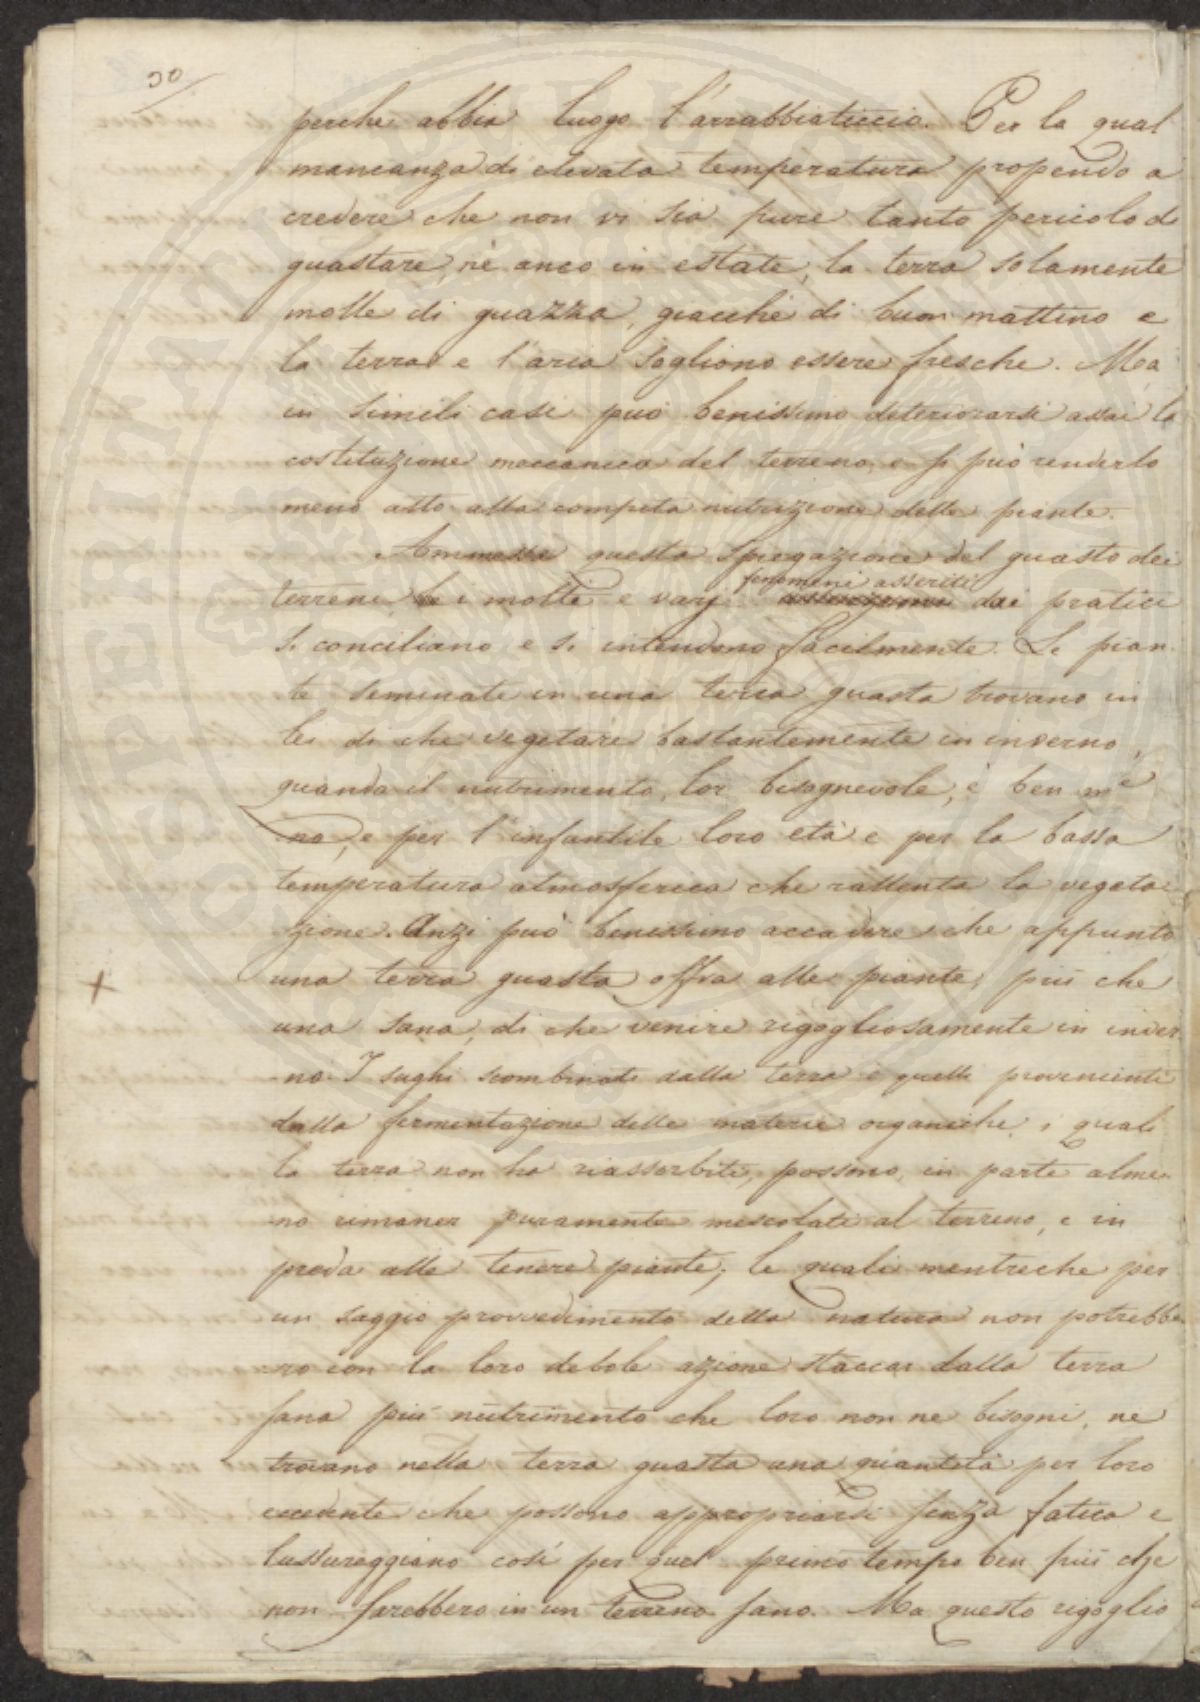 30
perche abbia luogo l'arrabbiaticcio. Per la qual
mancanza di elevata temperatura propendo a
credere che non vi sia pure tanto pericolo di
guastare, nè anco in estate, la terra solamente
molle di guazza, giacchè di buon mattino e
la terra e l'aria sogliono essere fresche. Ma
in simili casi può benissimo deteriorarsi assai la
costituzione meccanica del terreno, e si può renderlo
meno atto alla competa nutrizione delle piante.
Ammessa questa spiegazione del guasto dei
fenomeni asseriti
terreni, i molti e varj dai pratici
si conciliano e si intendono facilmente. Le pian
te seminate in una terra guasta trovano in
lei di che vegetare bastantemente in inverno,
quando il nutrimento, lor bisognevole, è ben me
no, e per l'infantile loro età e per la bassa
temperatura atmosferica che rallenta la vegeta
zione. Anzi può benissimo accadere che appunto
una terra guasta offra alle piante, più che
una sana, di che venire rigogliosamente in inver
no. I sughi scombinati dalla terra e quelli provenienti
dalla fermentazione delle materie organiche, i quali
la terra non ha riassorbiti, possono, in parte alme
no rimaner puramente mescolati al terreno, e in
preda alle tenere piante; le quali mentreche per
un saggio provvedimento della natura non potrebbe
ro con la loro debole azione staccar dalla terra
sana più nutrimento che loro non ne bisogni, ne
trovano nella terra guasta una quantità per loro
eccedente che possono appropriarsi senza fatica e
lussureggiano così per quel primo tempo ben più che
non farebbero in un terreno sano. Ma questo rigoglio